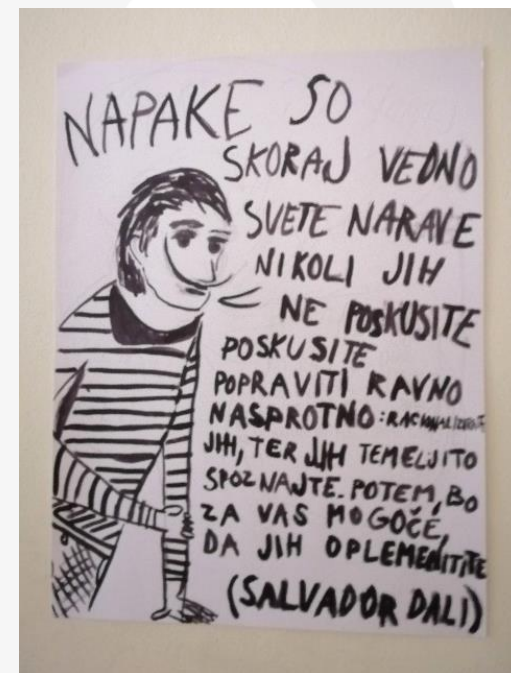 NAPAKE SO
SKORAJ VEDNO
SVETE NARAVE
NIKOLI JIH
NE POSKUSITE
POSKUSITE
POPRAVITI RAVNO
NASPROTNO:
JIH, TER JIH TEMELJITO
SPOZNAJTE. POTEM, BO
ZA VAS MOGOČE,
DA JIH OPLEMENITITE
(SALVADOR DALI)